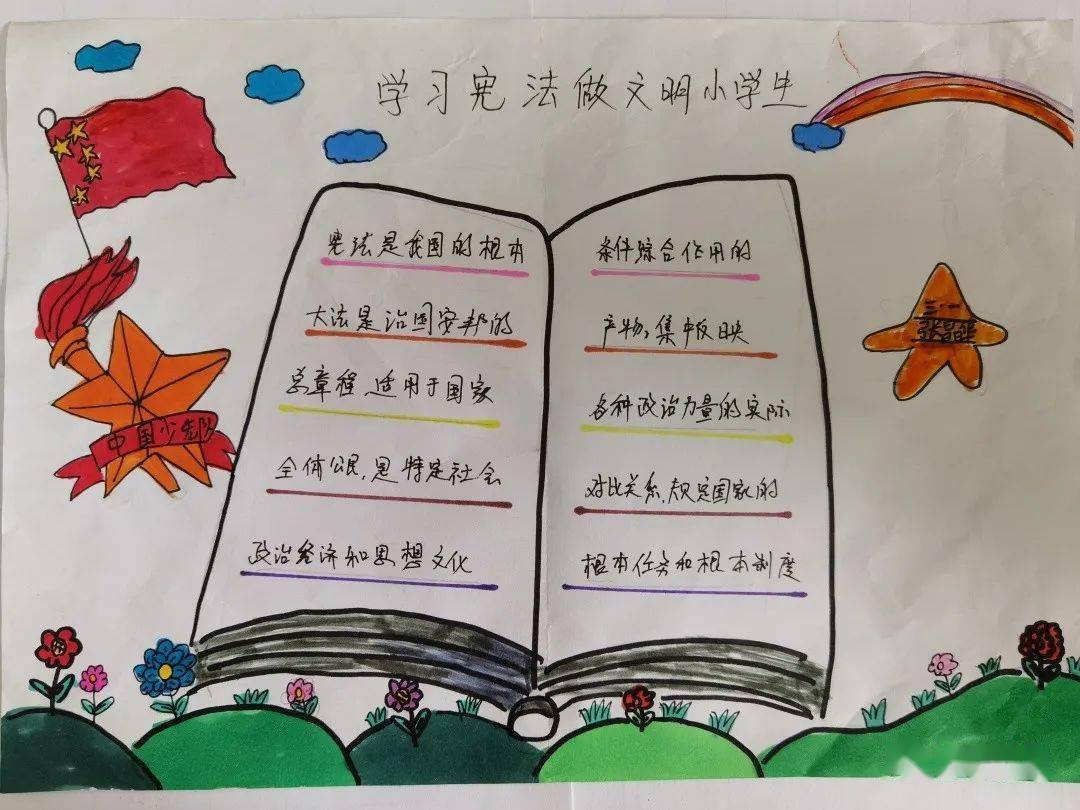 学习宪法做文明小学生
宪法是我国的根本
大法是治国安邦的
总章程,适用于国家
全体公民,是特定社会
政治经济和思想文化
条件综合作用的
产物,集中反映
各种政治力量的实际
对比关系,规定国家的
根本任务和根本制度
中国少先队
三·一